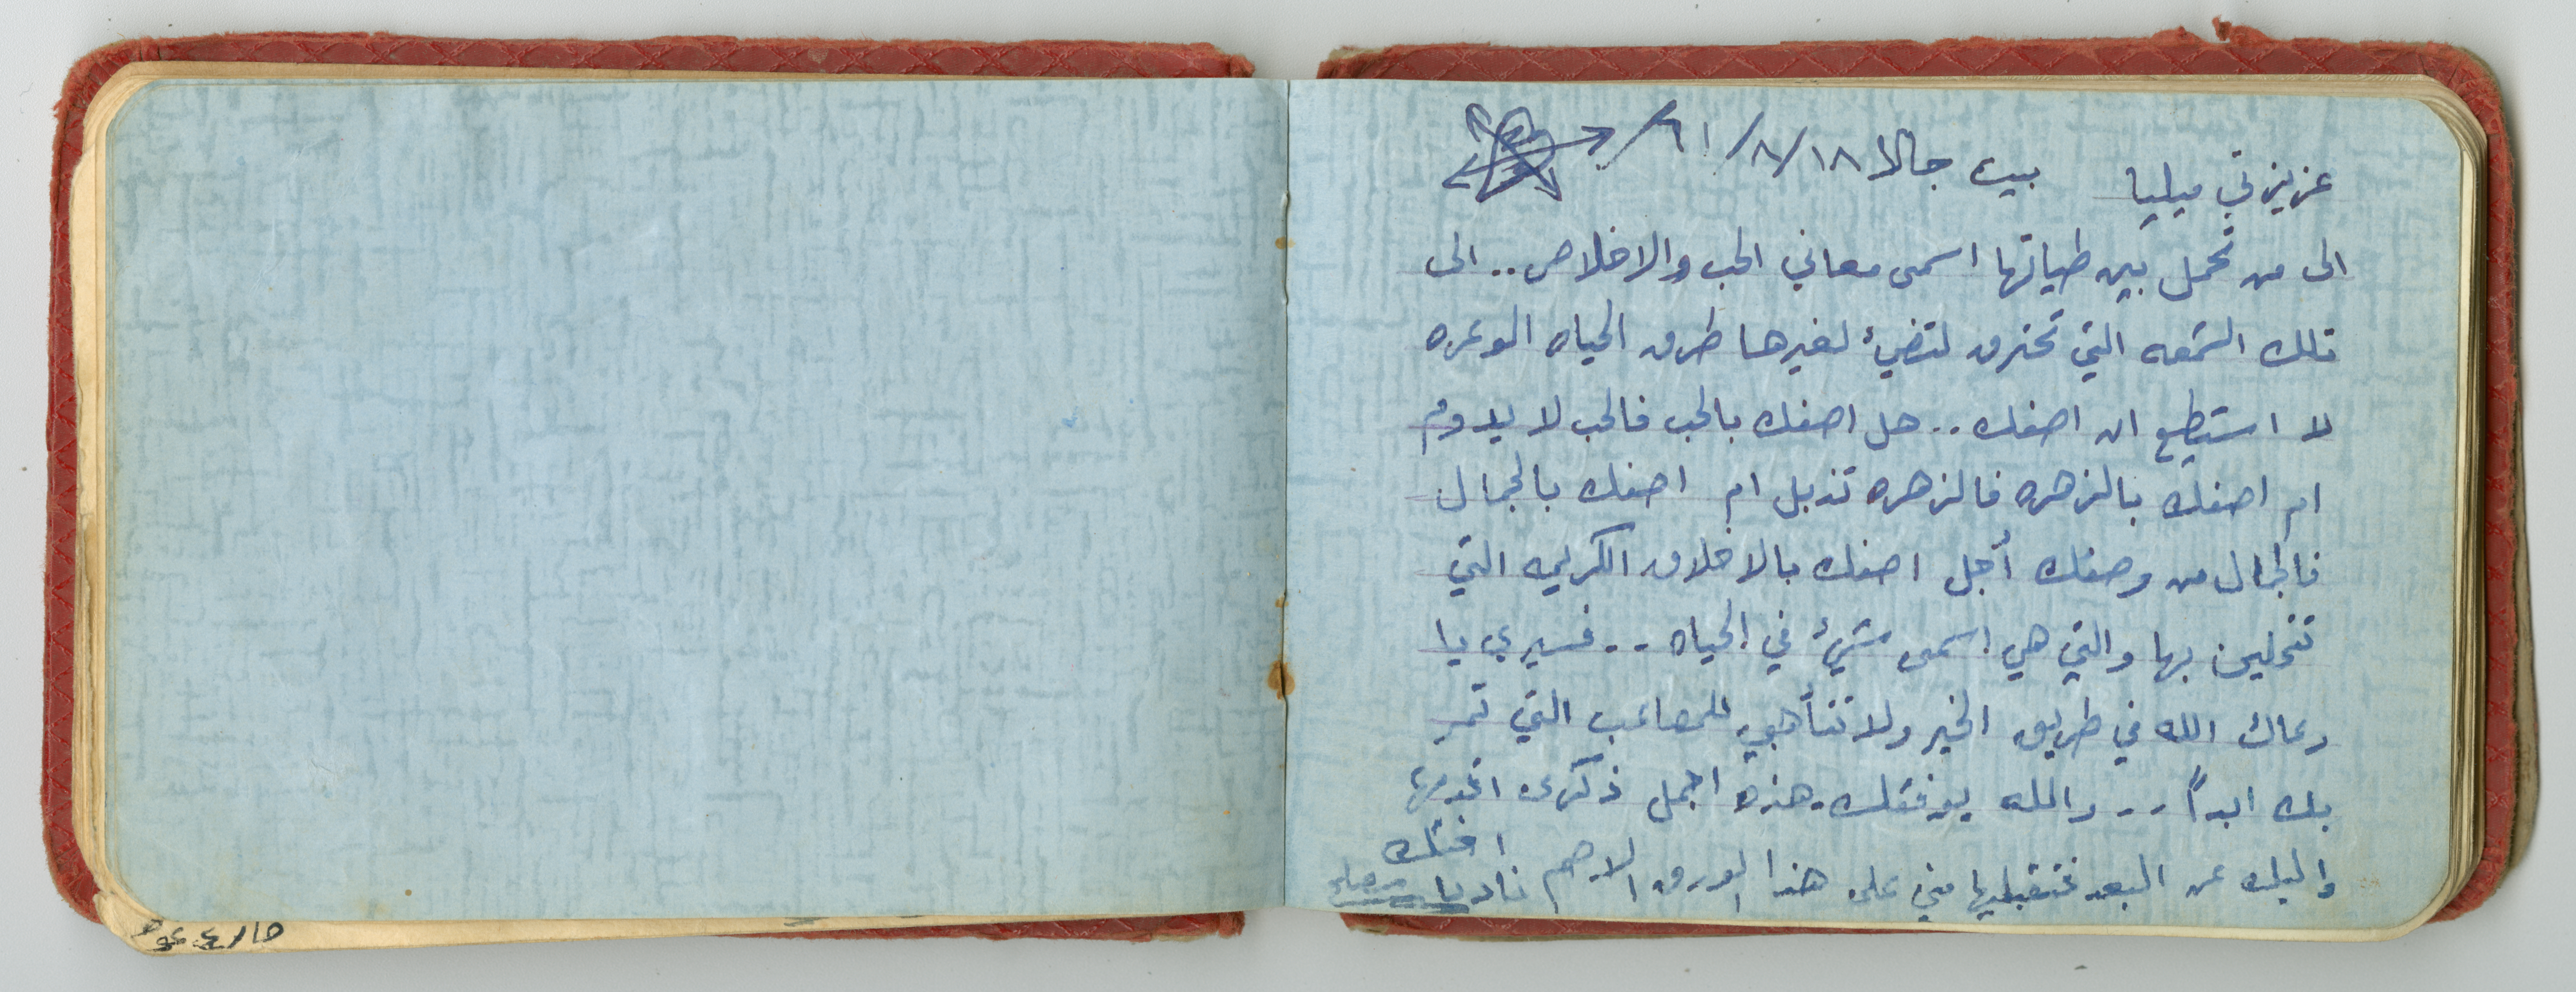 عزيزتي ميليا    بيت جالا ١٨/٨/٦١/
الى من تحمل بين طياتها اسمى معاني الحب والاخلاص .. الى
تلك الشمعه التي تحترق لتضيء لغيرها طرق الحياه الوعره
لا استطيع ان اصفك .. هل اصفك بالحب فالحب لا يدوم
ام اصفك بالزهره فالزهره تذبل ام اصفك بالجمال
فالجمال من وصفك أجل اصفك بالاخلاق الكريمه التي
تتحلين بها والتي هي اسمى شيء في الحياه .. فسيري يا
رعاك الله في طريق الخير ولا تتأهبي للمصاعب التي تمر
بك ابداً .. والله يوفقك . هذه اجمل ذكرى اقدمها
واليك عن البعد فتقبليها مني على هذا الورق الاصم اختك
ناديا